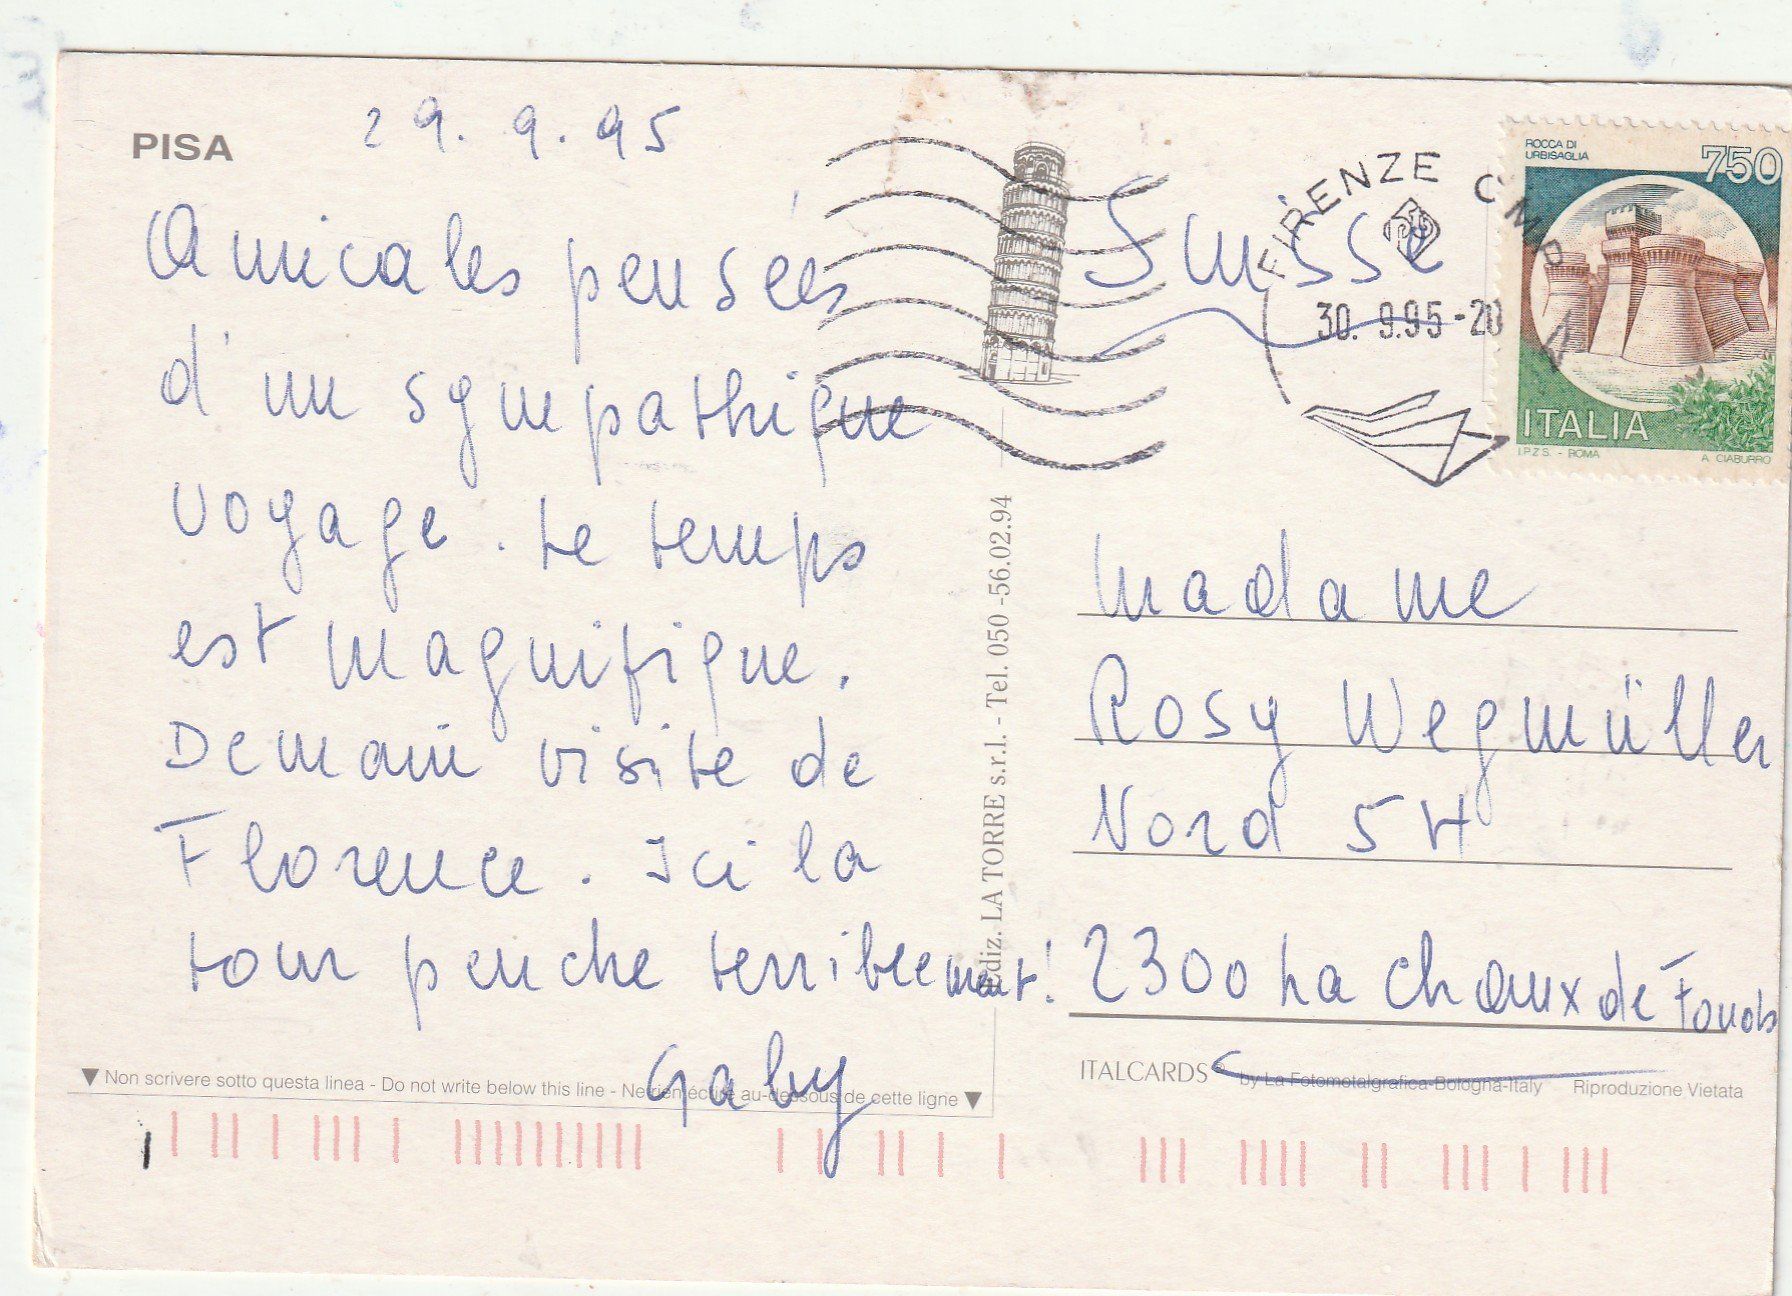 PISA
29.9.95
Amicales pensées
d'un sympathique
voyage. Le temps
est magnifique.
Demain visite de
Florence. Ici la
tour penche terriblement!
Gaby
▼ Non scrivere sotto questa linea - Do not write below this line - Ne rien écrire au-dessous de cette ligne ▼
Ediz. LA TORRE s.r.l. - Tel. 050 -56.02.94
Suisse
FIRENZE CMP
30. 9.95-20
ROCCA DI
URBISAGLIA
750
ITALIA
I.P.Z.S. - ROMA
A. CIABURRO
Madame
Rosy Wegmüller
Nord 54
2300 La Chaux de Fonds
ITALCARDS© by La Fotometalgrafica-Bologna-Italy
Riproduzione Vietata